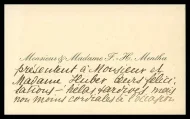 Monsieur & Madame F. H. Mentha
présentent à Monsieur et
Madame Huber leurs félici-
tations – hélas tardives mais
non moins cordiales à l'occasion